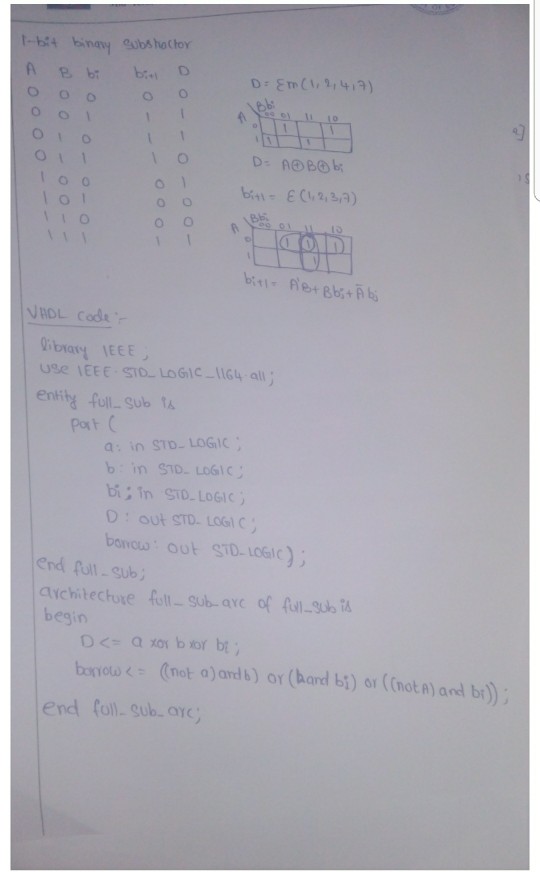 1-bit binary substractor
A B bi bi+1 D
0 0 0 0 0
0 0 1 1 1
0 1 0 1 1
0 1 1 1 0
1 0 0 0 1
1 0 1 0 0
1 1 0 0 0
1 1 1 1 1
D = Σm(1,2,4,7)
A Bbi
00 01 11 10
0 1 1
1 1 1
D = A⊕B⊕bi
bi+1 = Σ(1,2,3,7)
A Bbi
00 01 11 10
0 1 1 1
1 1
bi+1 = A'B + Bbi + Ābi
VHDL code :-
library IEEE;
use IEEE.STD_LOGIC_1164.all;
entity full_sub is
port (
a: in STD_LOGIC;
b: in STD_LOGIC;
bi; in STD_LOGIC;
D: out STD_LOGIC;
borrow: out STD_LOGIC);
end full_sub;
architecture full_sub_arc of full_sub is
begin
D <= a xor b xor bi;
borrow <= ((not a) and b) or (b and bi) or ((not A) and bi));
end full_sub_arc;